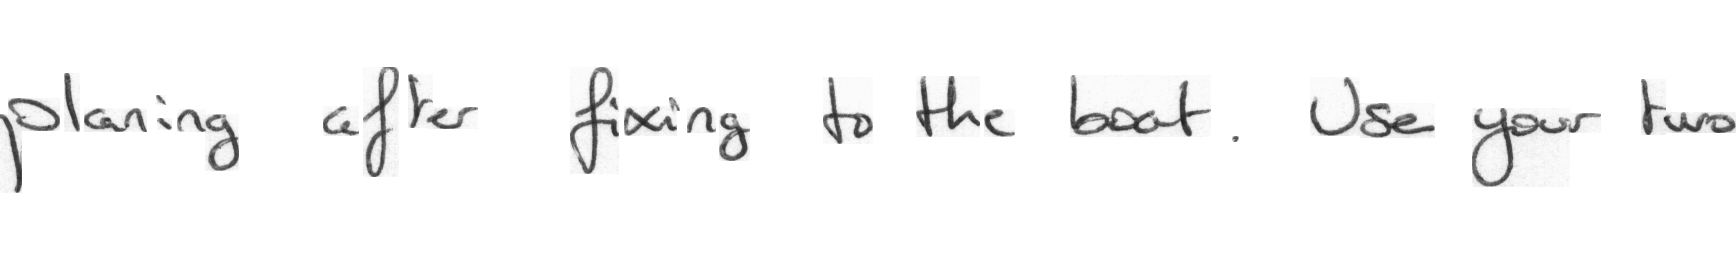 planing after fixing to the boat. Use your two